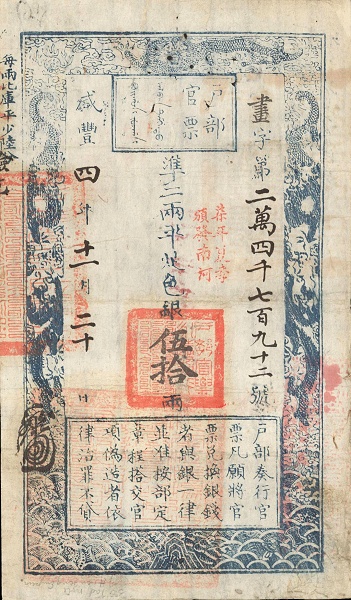 戶部
官票
畫字第二萬四千七百九十二號
準二兩平足色銀伍拾兩
咸豐四年十一月二十日
戶部奏行官
票凡願將官
票兌換銀錢
者與銀一律
並准按部定
章程搭交官
項偽造者依
律治罪不貸
每兩比庫平少陸分